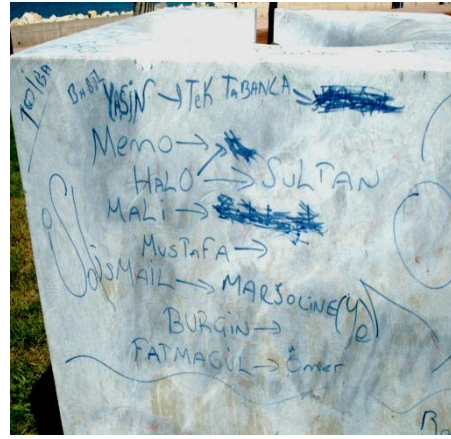 YASİN → TEK TABANCA →
MEMO →
HALO → SULTAN
MALİ →
MUSTAFA →
İSMAIL → MARŞOLİNE(YE)
BURGİN →
FATMAGÜL → Ömer